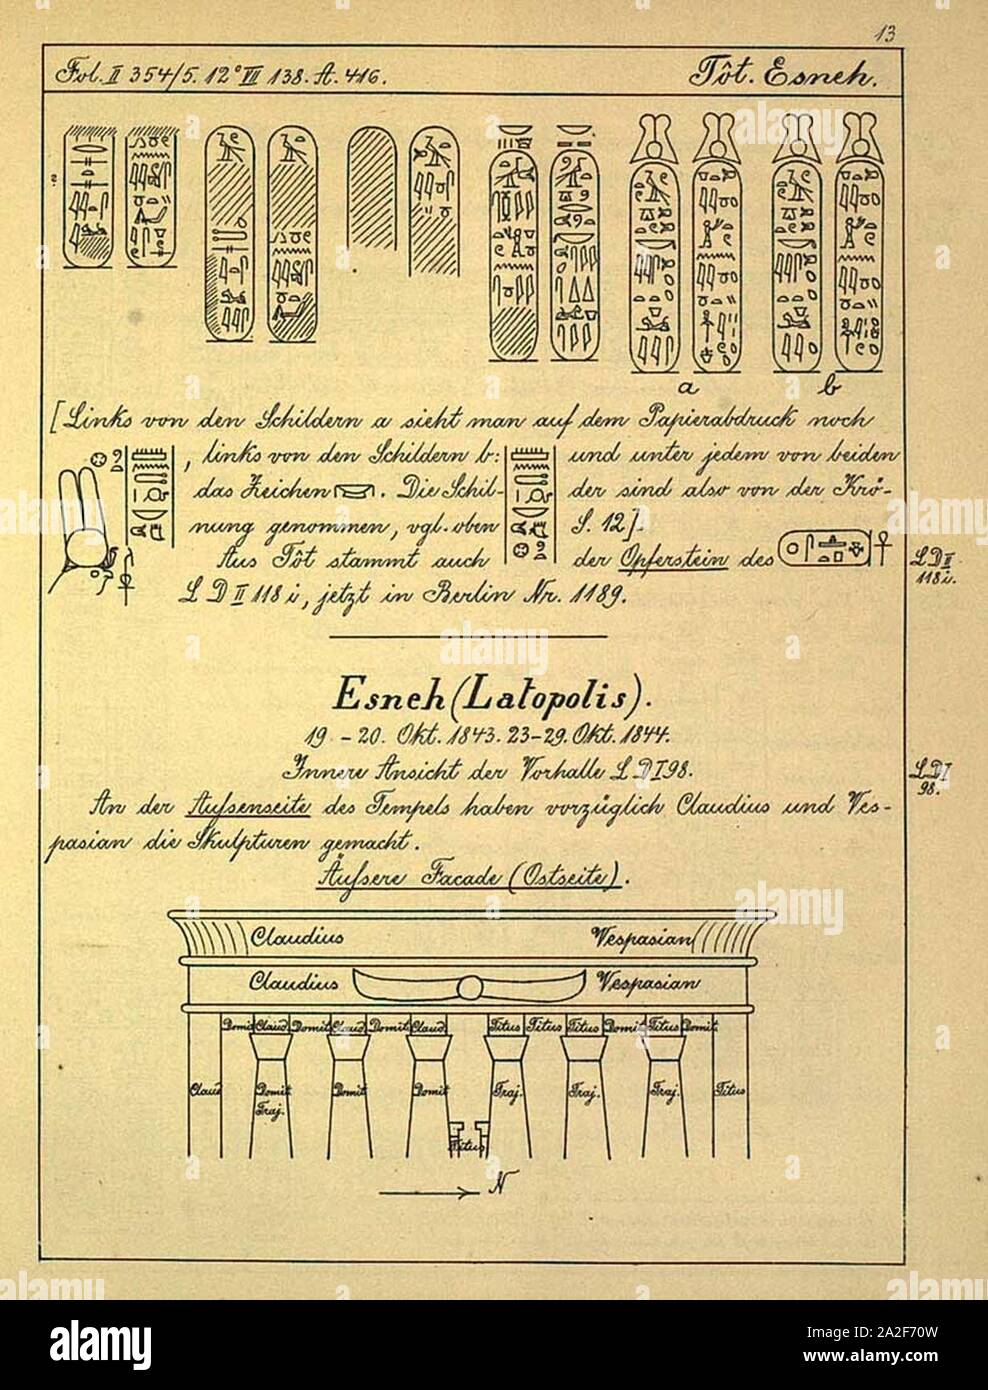 13
Fol. II 354/5. 12° VII 138. A. 416. Tôt. Esneh.
a b
[Links von den Schildern a sieht man auf dem Papierabdruck noch
, links von den Schildern b: und unter jedem von beiden
das Zeichen . Die Schil- der sind also von der Krö-
nung genommen, vgl. oben S. 12].
Aus Tôt stammt auch der Opferstein des
LD II
118 i.
L D II 118 i, jetzt in Berlin Nr. 1189.
Esneh (Latopolis).
19 - 20. Okt. 1843. 23-29. Okt. 1844.
Innere Ansicht der Vorhalle L D I 98.
LD I
98.
An der Aufsenseite des Tempels haben vorzüglich Claudius und Ves-
pasian die Skulpturen gemacht.
Äufsere Facade (Ostseite).
Claudius Vespasian
Claudius Vespasian
Domit Claud Domit Claud Domit Claud Titus Titus Titus Domit Titus Domit
Claud Domit Domit Domit Traj. Traj. Traj. Titus
Traj.
Titus
N
alamy
Image ID: 2A2F70W
www.alamy.com